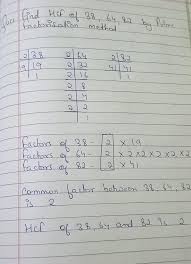 find HCF of 38, 64, 82 by Prime
factorisation method
2 | 38   2 | 64   2 | 82
19 | 19   2 | 32   41 | 41
1   2 | 16   1
2 | 8
2 | 4
2 | 2
1
factors of 38 - 2 × 19
factors of 64 - 2 × 2 × 2 × 2 × 2 × 2
factors of 82 - 2 × 41
Common factor between 38, 64, 82
is 2
HCF of 38, 64 and 82 is 2